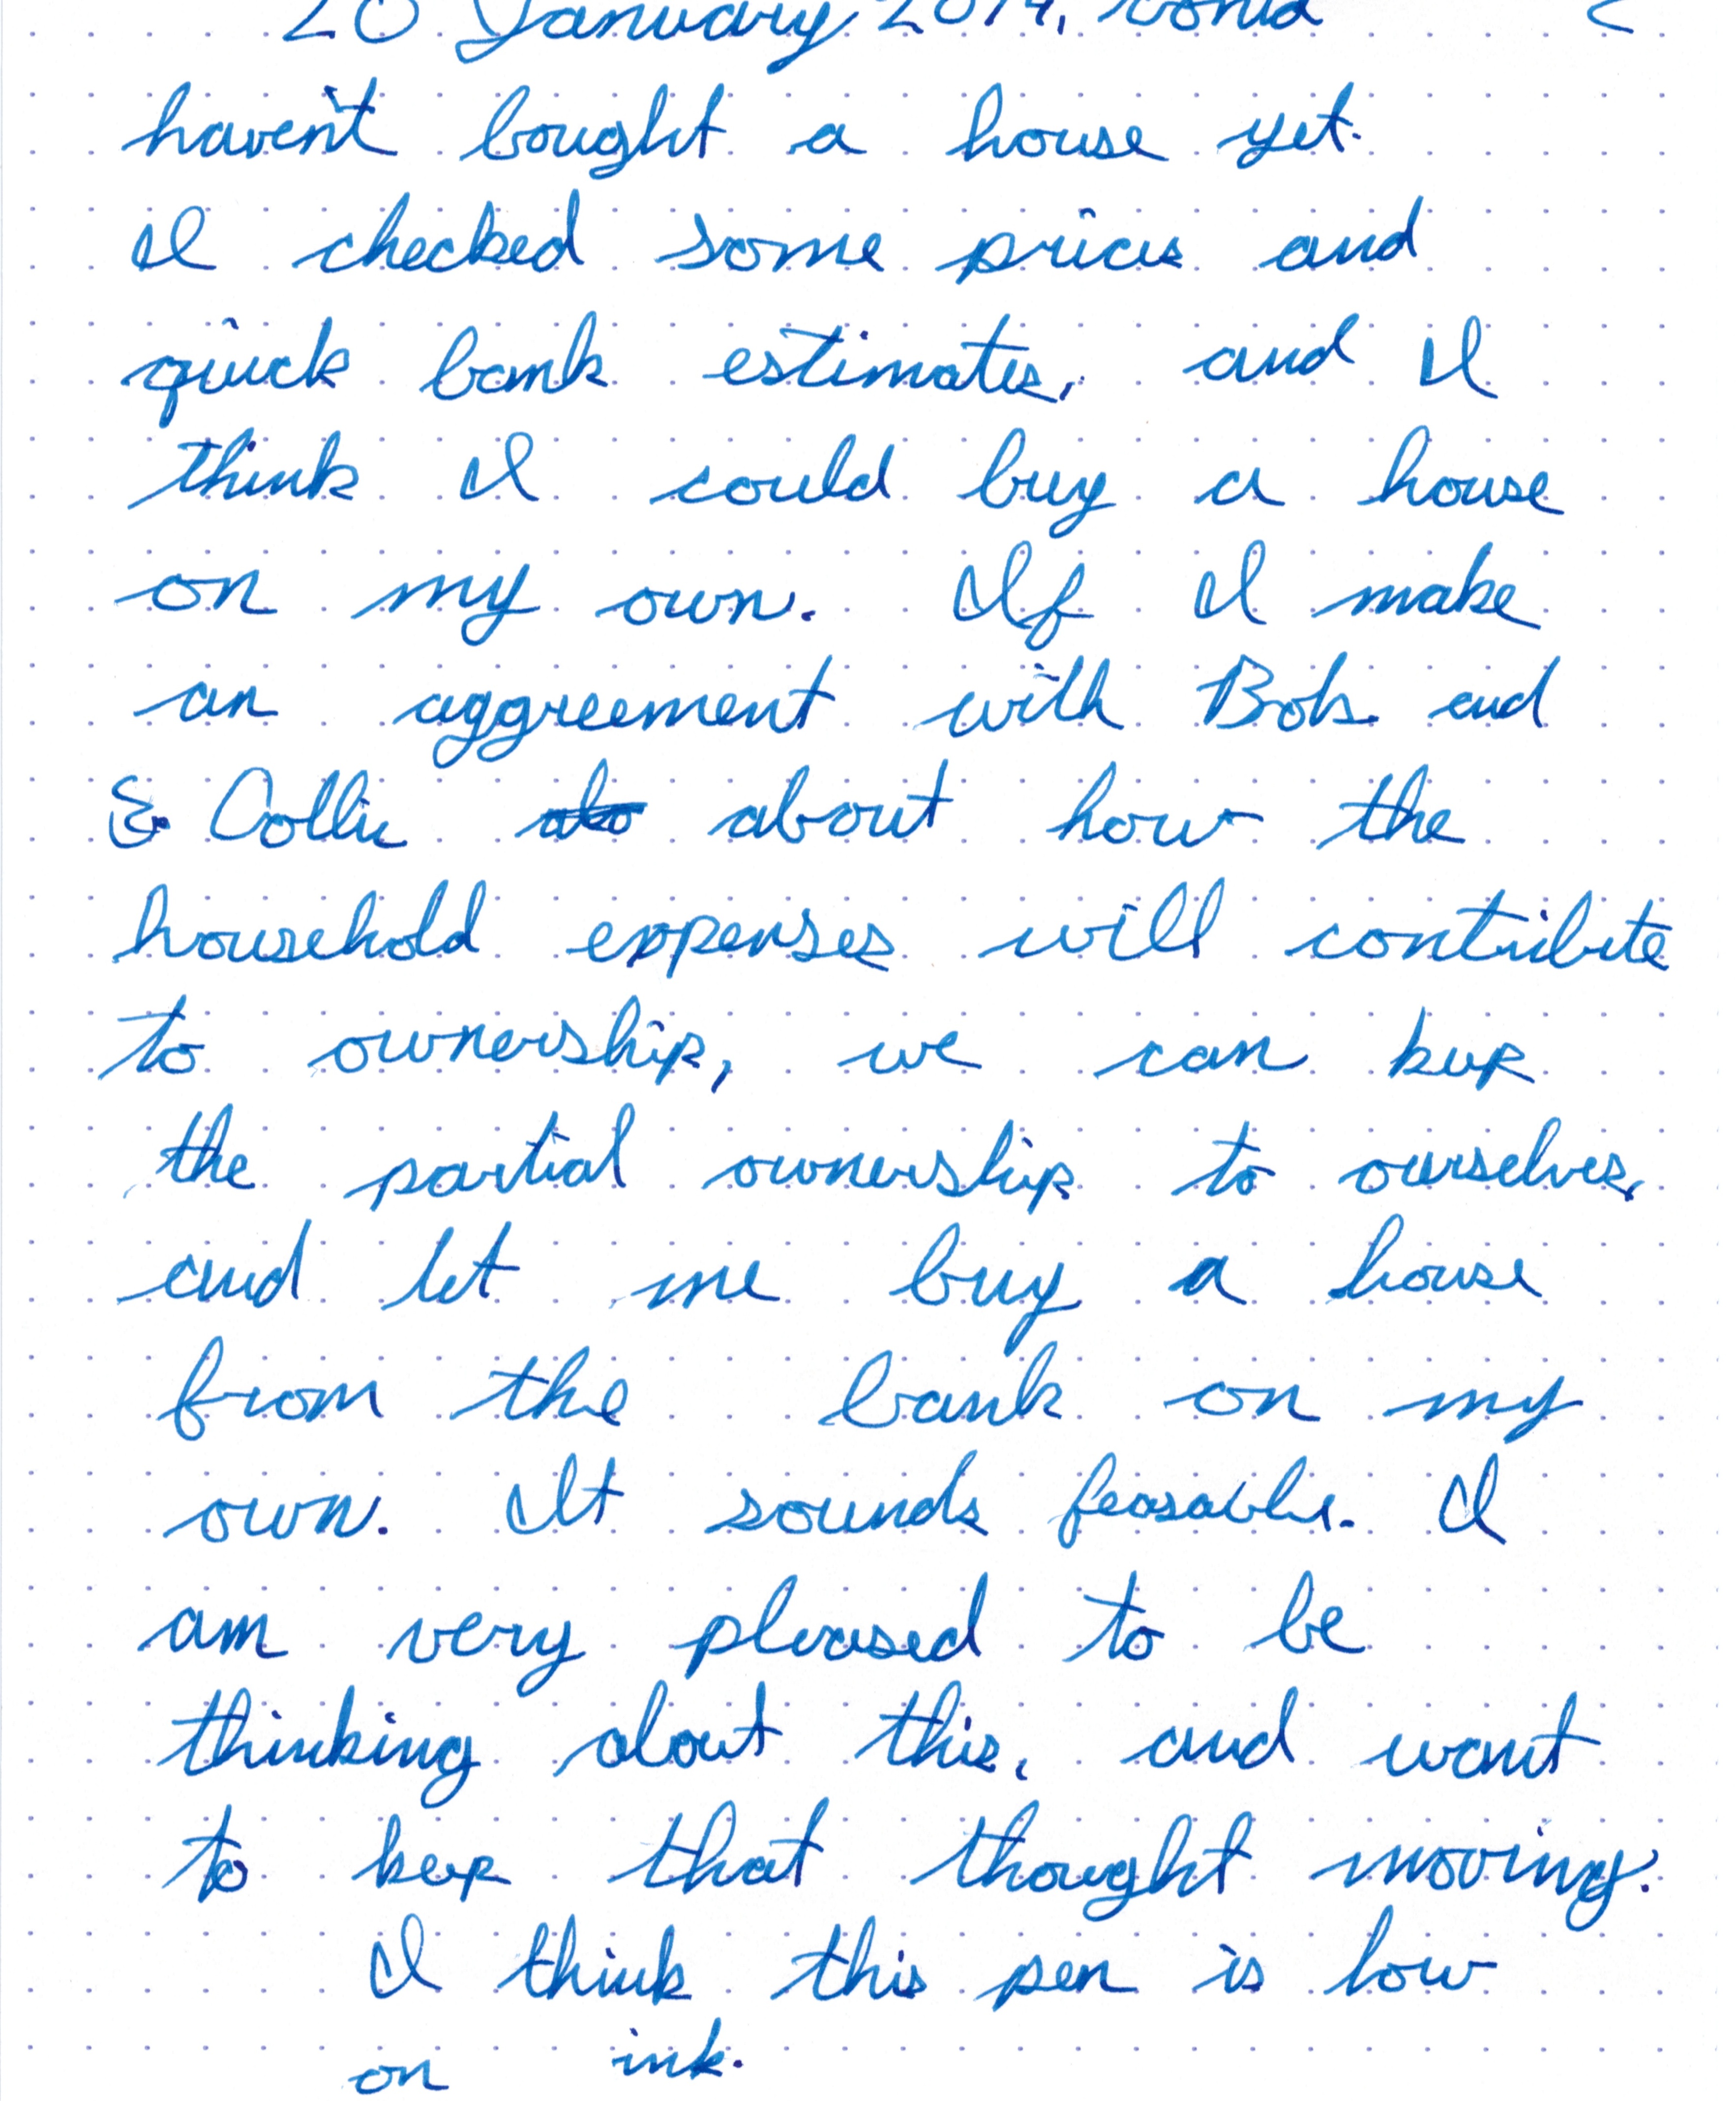 20 January 2019,
haven't bought a house yet.
I checked some prices and
quick bank estimates, and I
think I could buy a house
on my own. If I make
an aggreement with Bob and
& Collie about how the
household expenses will contribute
to ownership, we can keep
the partial ownership to ourselves,
and let me buy a house
from the bank on my
own. It sounds feasable. I
am very pleased to be
thinking about this, and want
to keep that thought moving.
I think this pen is low
on ink.